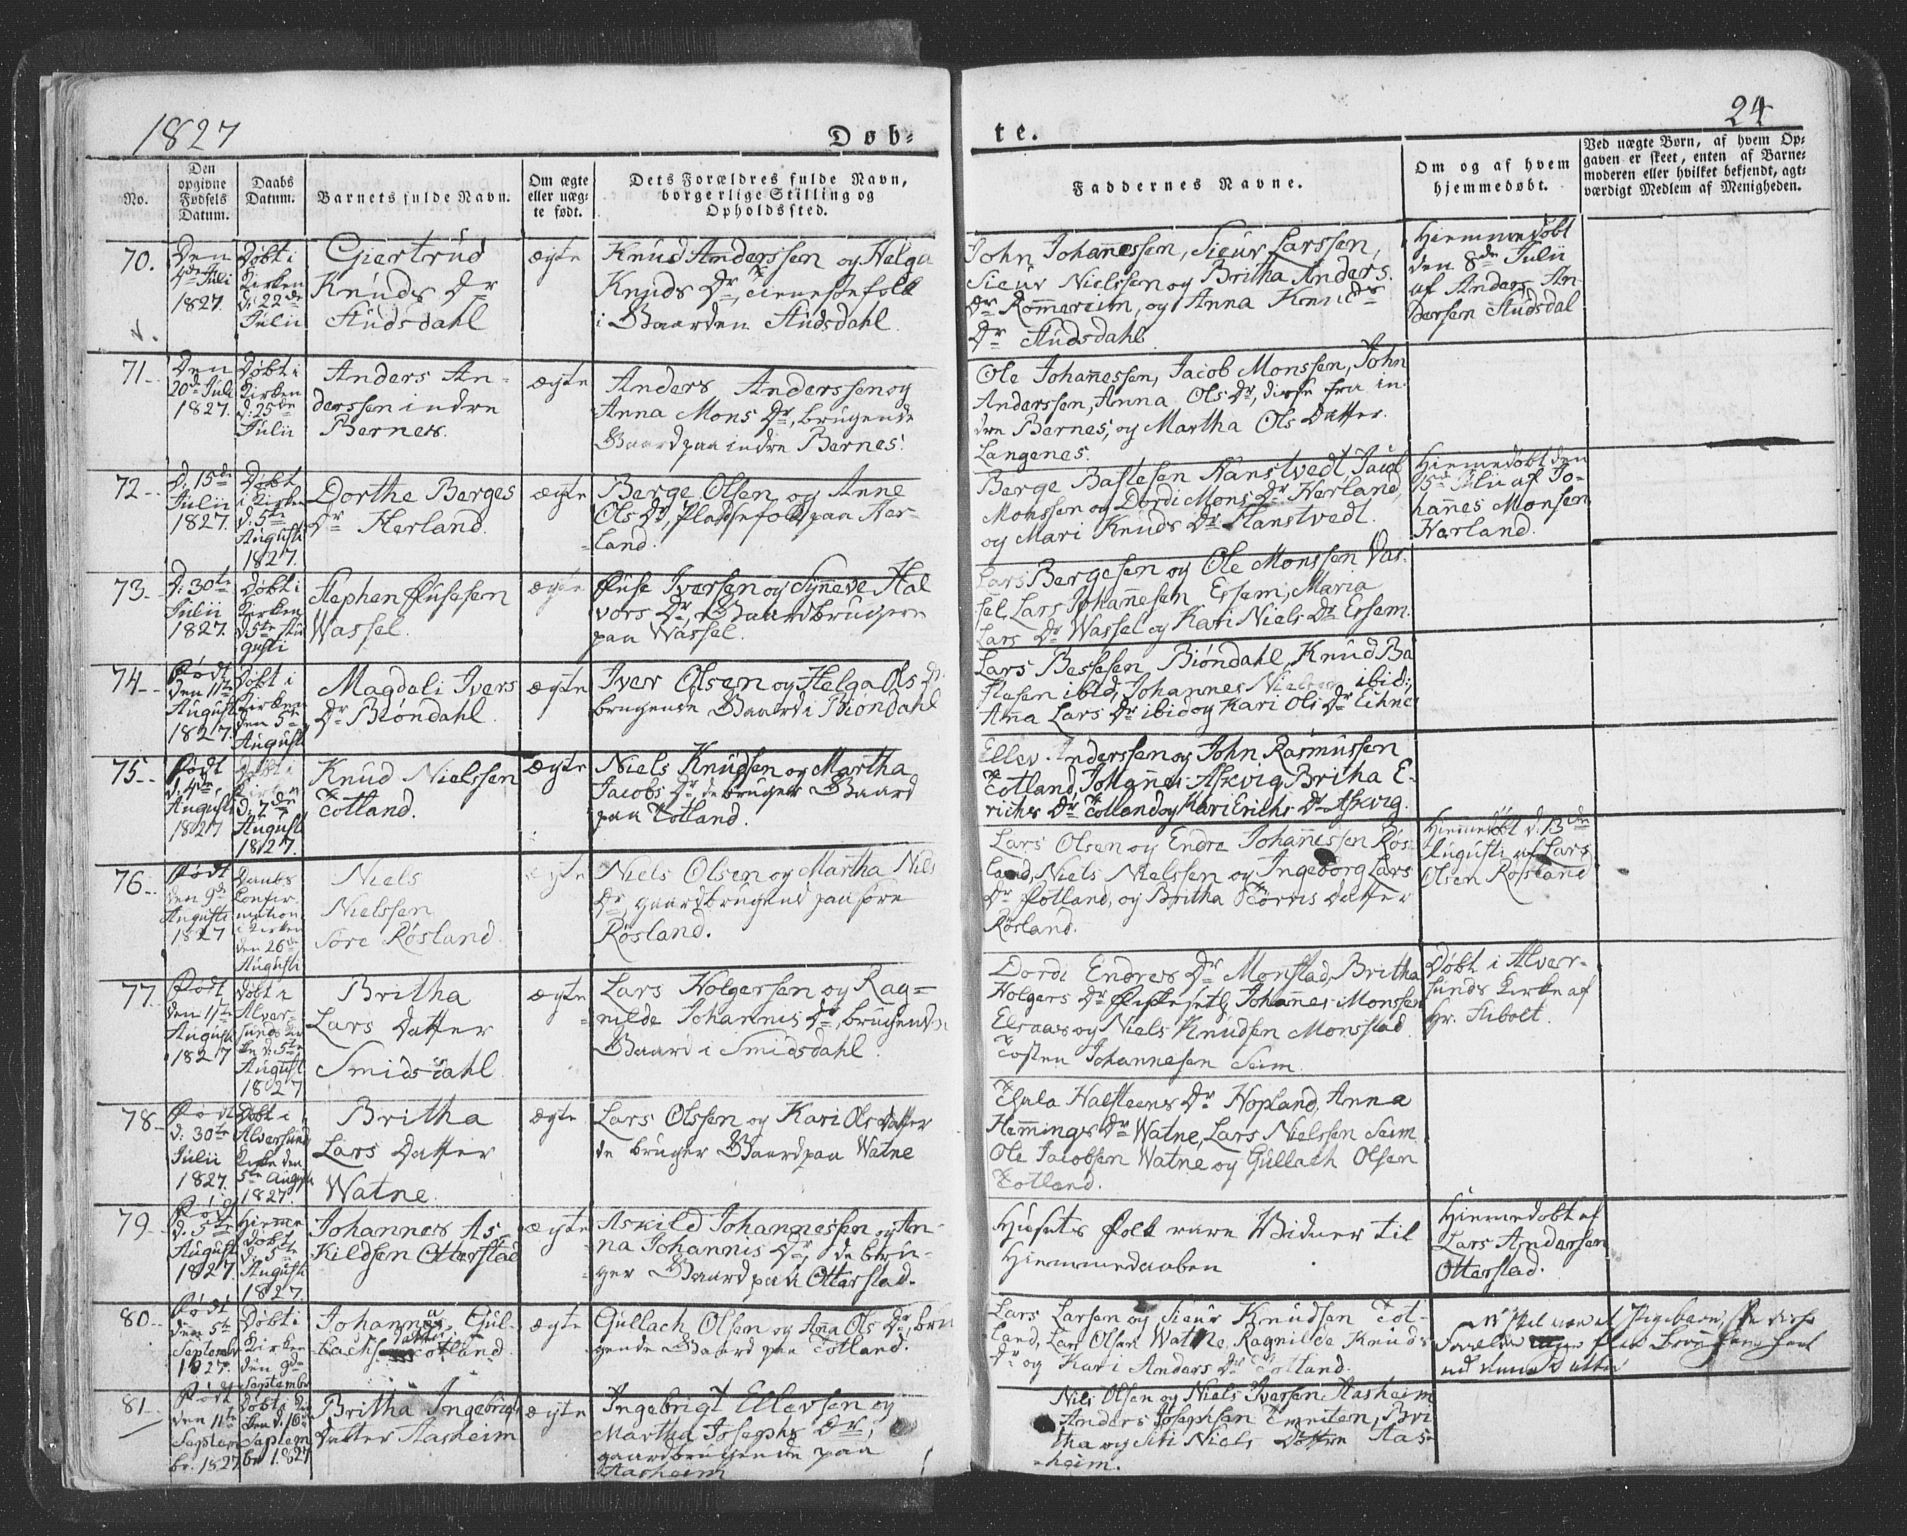 1827
Døb-
te.
24
No.
Den
opgivne
Fødsels
Datum.
Daabs
Datum.
Barnets fulde Navn.
Om ægte
eller uæg-
te født.
Dets Forældres fulde Navn,
borgerlige Stilling og
Opholdssted.
Faddernes Navne.
Om og af hvem
hjemmedøbt.
Ved uægte Børn, af hvem Op-
gaven er skeet, enten af Barne-
moderen eller hvilket bekjendt, agt-
værdigt Medlem af Menigheden.
70.
Den
4de Julii
1827.
Døbt i
Kirken
d: 22de
Julii
Giertrud
Knuds Dr
Studsdahl
ægte
Knud Anderssen og Helga
Knuds Dr, tienestefolk
i Gaarden Studsdahl.
John Johannessen, Sieur Larssen,
Sieur Nielssen og Britha Anders
Dr Rommereim, og Anna Knuds
Dr Studsdahl.
Hiemmedøbt
den 8de Julii
af Anders An-
dersen Studsdal
71
Den
20de Juli
1827.
Døbt i
Kirken
d: 25de
Julii
Anders An-
derssen indre
Bernes.
ægte
Anders Anderssen og
Anna Mons Dr, brugende
Gaard paa indre Bernes.
Ole Johannessen, Jacob Monssen, John
Anderssen, Anna Ols Dr, disse fra in-
dre Bernes, og Martha Ols Datter
Langenes.
72
d: 15de
Julii
1827.
Døbt
i Kirken
d: 5te
Augusti
1827.
Dorthe Berges
Dr Herland.
ægte
Berge Olsen og Anne
Ols Dr, Pladsefolk paa Her-
land.
Berge Bastesen Hanstvedt, Jacob
Monssen og Dordi Mons Dr Herland,
og Mari Knuds Dr Hanstvedt.
Hiemmedøbt den
15de Julii af Jo-
hannes Monsen
Herland.
73
D: 30te
Julii
1827.
Døbt i
Kirken
d: 5te Au
gusti
Stephen Fusesen
Wassel.
ægte
Fuse Iversen og Synneve Hal
vors Dr, Gaardbrugere
paa Wassel.
Lars Bergesen og Ole Monssen Vas-
sel, Lars Johannesen Essem, Maria
Lars Dr Wassel og Kari Niels Dr Essem.
74
Født
den 1te
Augusti
1827.
Døbt i
Kirken
den 5te
Augusti
Magdeli Ivers
Dr Biøndahl.
ægte
Iver Olsen og Helga Ols Dr
brugende Gaard i Biøndahl
Lars Bessesen, Biøndahl, Knud Ba
stesen ibid, Johannes Nielsen ibid;
Anna Lars Dr ibid og Kari Ols Dr Eihnes
75
Født
d: 4de
Augusti
1827
Døbt i
Kirken
d: 7de
Augusti
1827.
Knud Nielssen
Totland.
ægte
Niels Knudsen og Martha
Jacobs Dr, de bruger Gaard
paa Totland.
Ellev Anderssen og John Rasmussen
Totland, Johannes Askvig, Britha E-
richs Dr Totland og Kari Erichs Dr Askvig.
76
Født
den 9de
Augusti
1827
Daabs
Confir-
mation
i Kirken
den 26de
Augusti
Niels
Nielssen
Søre Røsland.
ægte
Niels Olsen og Martha Niels
Dr, gaardbrugend paa søre
Røsland.
Lars Olsen og Endre Johannessen Røs-
land, Niels Nielssen og Ingeborg Lars
Dr Fotland, og Britha Størris Datter
Røsland.
Hiemmedøbt d: 13de
Augusti af Lars
Olsen Rosland
77
Født
den 1te
Augusti
1827
Døbt i
Alver-
sunds Kir
ke d: 5te
August
1827
Britha
Lars Datter
Smidsdahl
ægte
Lars Holgersen og Rag-
nilde Johannis Dr, brugende
Gaard i Smidsdahl.
Dordi Endres Dr Monstad, Britha
Holgers Dr Fiskesetl, Johannes Monssen
Elsaas og Niels Knudsen Monsstad
Tosten Johannesen Seim.
Døbt i Alver-
sunds Kirke af
Hr. Stibolt.
78
Født
d: 30te
Julii
1827.
Døbt i
Alversund
Kirke den
5te Augusti
1827.
Britha
Lars Datter
Watne.
ægte
Lars Olssen og Kari Ols Datter
de bruger Gaard paa Watne
Thula Halsteens Dr Hopland, Anna
Hemmings Dr Watne, Lars Nielssen Seim
Ole Jacobsen Watne og Gullach Olsen
Totland.
79
Født
d: 5te
August
1827.
Hieme
døbt
d: 5te
Augusti
1827.
Johannes As
kildsen Otterstad
ægte
Askild Johannessen og An-
na Johannis Dr, de bru-
ger Gaard paa Otterstad.
Husets Folk vare Vidner til
Hiemmedaaben
Hiemmedøbt af
Lars Andersen
Otterstad.
80
Født
den 5te
Septembr
1827.
Døbt i
Kirken
den 9de
Septembr
Johanna Gul-
lachs Datter Totland.
ægte
Gullach Olsen og Anna Ols Dr, bru
gende Gaard paa Totland.
Lars Larsen og Sieur Knudsen Tot-
land, Lars Olsen Watne, Ragnilde Knuds
Dr og Kari Anders Dr Totland.
81
Født
den 11te
Septem
br. 1827
Døbt i Kir
ken d. 16de
Septem
br 1827
Britha Ingebrigt
Datter Aasheim
ægte
Ingebrigt Ellevsen og
Martha Josephs Dr,
gaardbrugende paa
Aasheim
Nils Olsen og Niels Iversen Aasheim
Anders Josephsen Tveiten, Bri
tha og Siri Niels Døttre Aas-
heim.